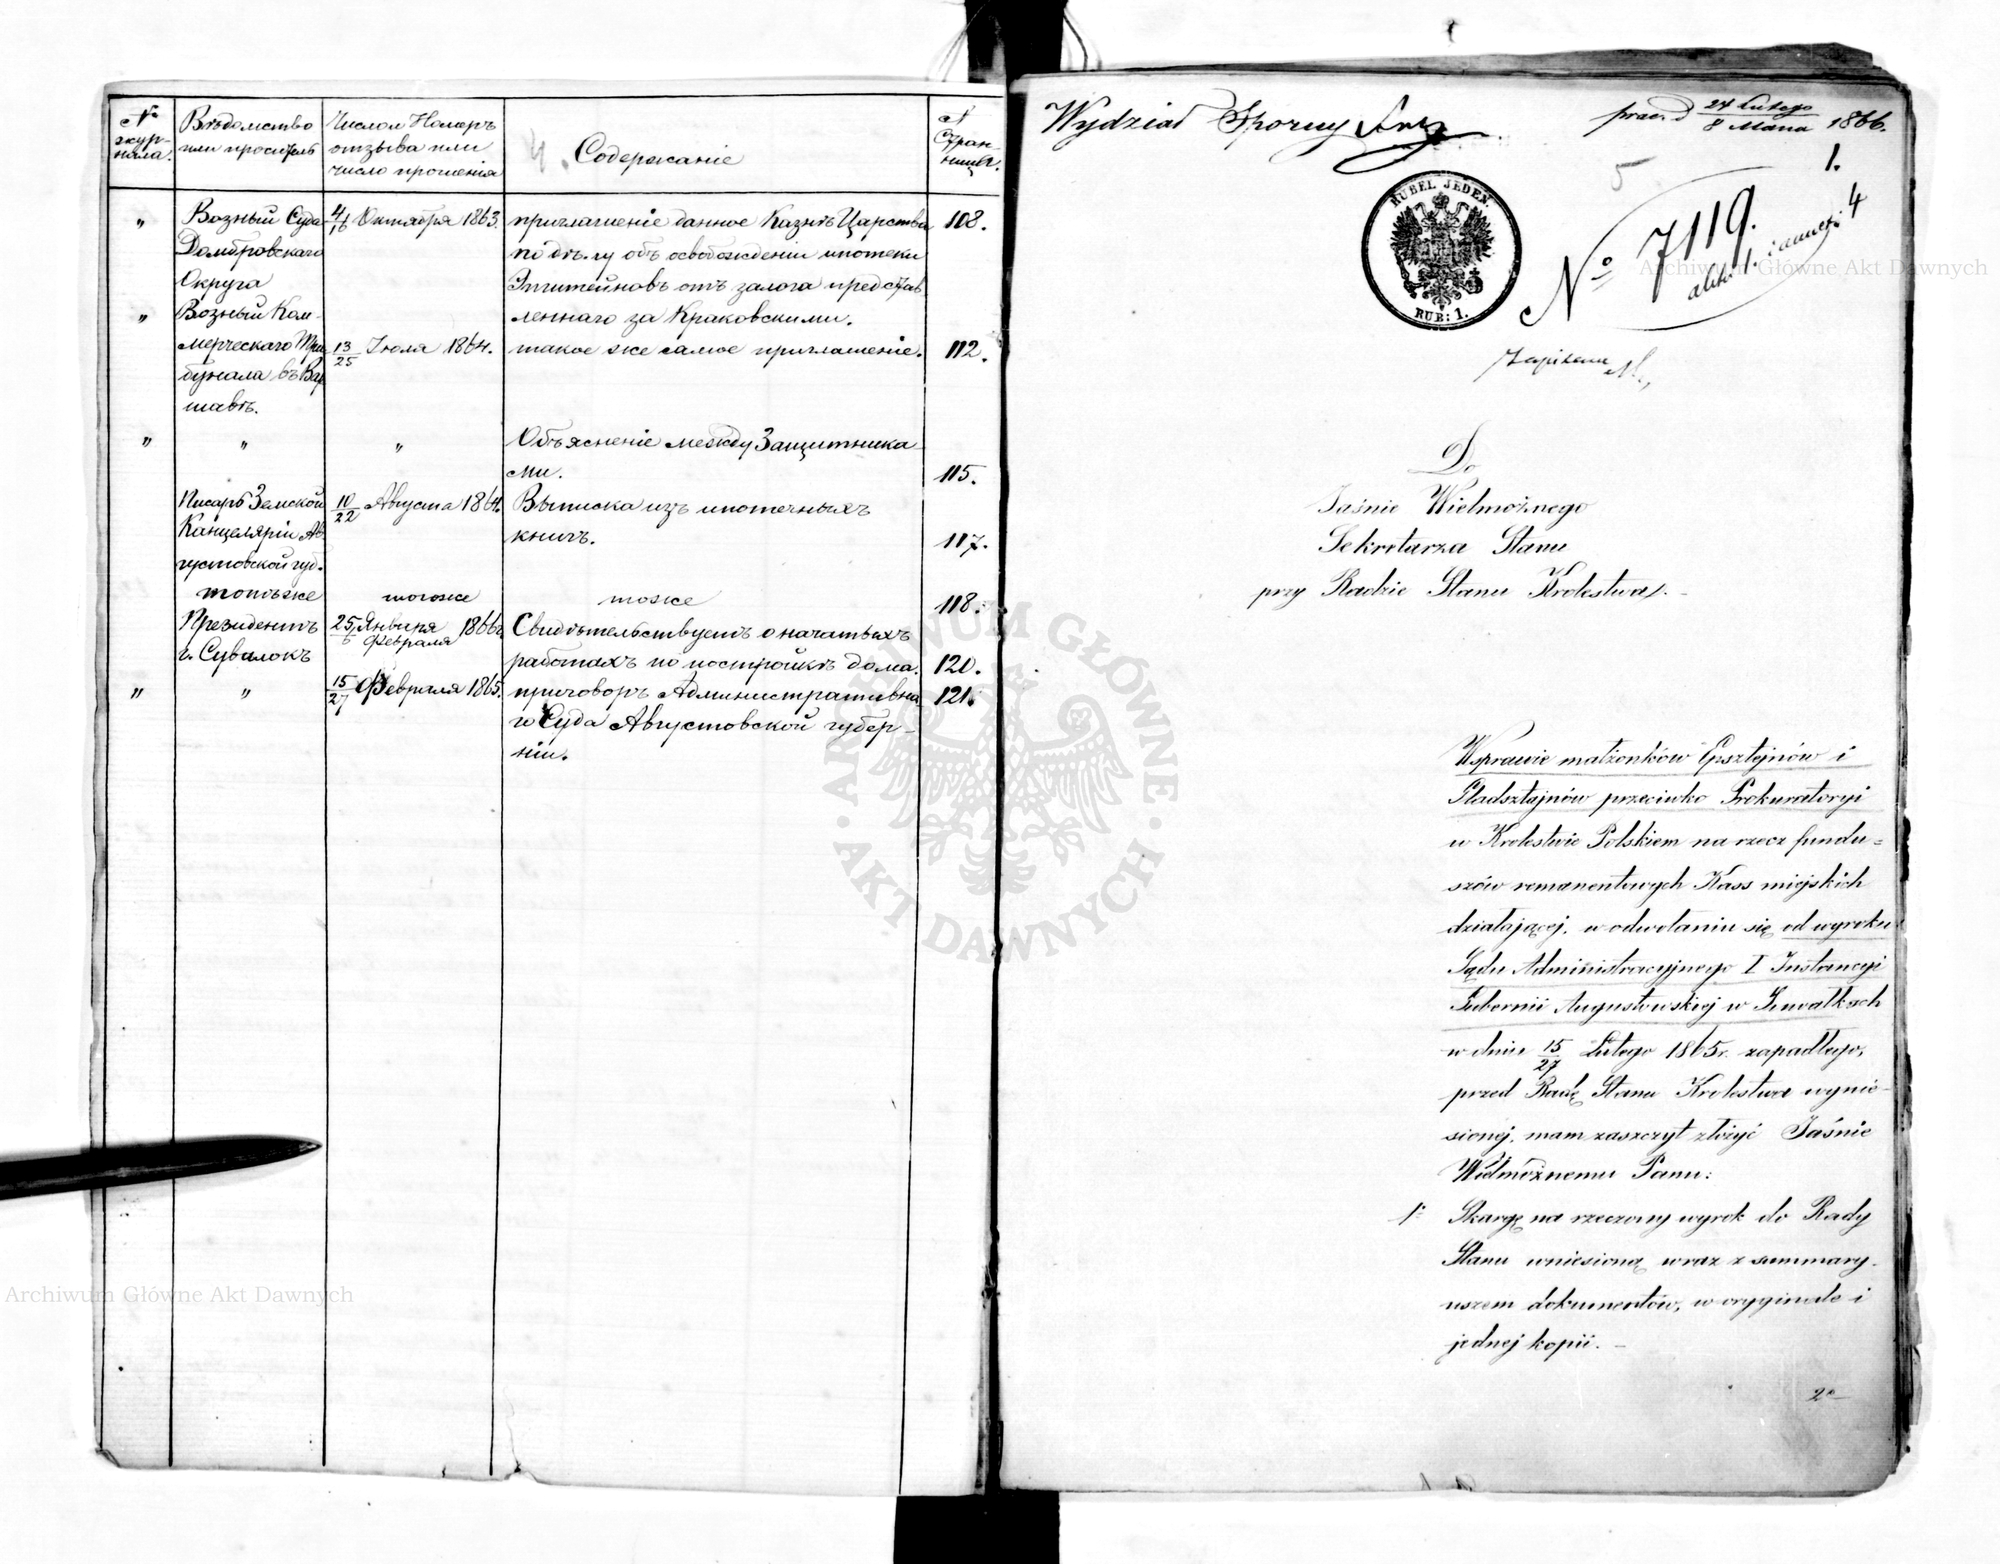 № журнала.
Вѣдомство или проситель
Число и Номеръ отзыва или число прошенія
Содержаніе
№ Страницы.
" Возный Суда 4/16 Октября 1863. приглашеніе данное Казнѣ Царства 108.
Домбровскаго по дѣлу объ освобожденіи ипотеки
Округа Эпштейновъ отъ залога представ
" Возный Ком- леннаго за Краковскими.
мерческаго Три 13/25 Іюля 1864. такое же самое приглашеніе. 112.
бунала въ Вар
шавѣ.
" " " Объясненіе между Защитника
ми. 115.
Писарь Земской 10/22 Августа 1864. Выписка изъ ипотечныхъ
Канцеляріи Ав книгъ. 117.
густовской губ.
тотъ же тогоже тоже 118.
Президентъ 25/6 Января/Февраля 1866 Свидѣтельствуетъ о начатыхъ
г. Сувалокъ работахъ по постройкѣ дома. 120.
" " 15/27 Февраля 1865. приговоръ Административна 121.
го Суда Августовской губер-
ніи.
Wydział Sporny
24 Lutego / 8 Marca 1866.
1.
5
4
RUBEL JEDEN.
RUB: 1.
№ 7119.
Do
Jaśnie Wielmożnego
Sekretarza Stanu
przy Radzie Stanu Krolestwa.
W sprawie małżonków Epsztejnów i
Sladsztajnów przeciwko Prokuratoryi
w Krolestwie Polskiem na rzecz fundu=
szów remanentowych Kass miejskich
działającej, w odwołaniu się od wyroku
Sądu Administracyjnego I Instancyi
Gubernii Augustowskiej w Suwałkach
w dniu 15/27 Lutego 1865 r. zapadłego,
przed Radę Stanu Krolestwa wynie-
sionej, mam zaszczyt złożyć Jaśnie
Wielmożnemu Panu:
1° Skargę na rzeczony wyrok do Rady
Stanu wniesioną wraz z summary-
uszem dokumentów, w oryginale i
jednej kopii. -
2°
ARCHIWUM GŁÓWNE AKT DAWNYCH
Archiwum Główne Akt Dawnych
Archiwum Główne Akt Dawnych